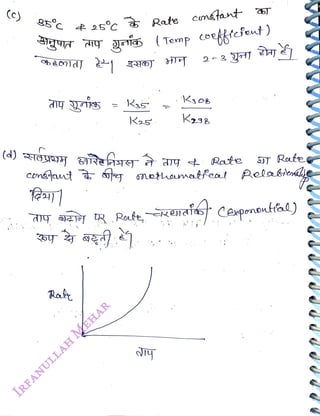 (c) 35°C & 25°C के Rate constant का
अनुपात ताप गुनांक (Temp coefficient)
कहलाता है। इसका मान 2-3 गुना होता है।
ताप गुनांक = K35/K25 = K308/K298
(d) सर्वप्रथम आरेनियस ने ताप & Rate या Rate
constant के बीच mathematical Relationship
दिया।
ताप बढ़ाने पर Rate, चरघातांकी (exponential)
रूप से बढ़ती है।
Rate
ताप
IRFANULLAH MEHAR